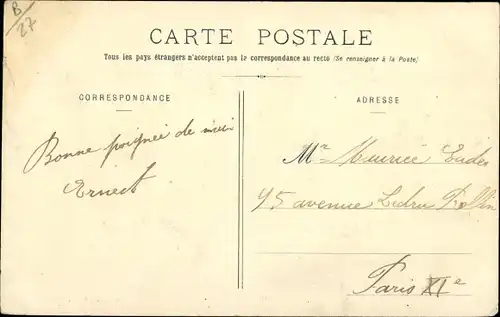 B/27
CARTE POSTALE
Tous les pays étrangers n'acceptent pas la correspondance au recto (Se renseigner à la Poste)
CORRESPONDANCE
ADRESSE
Bonne poignée de main
Ernest
Mr Maurice Eudes
95 avenue Ledru Rollin
Paris XIe